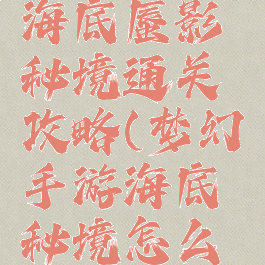 海底蜃影
秘境通关
攻略(梦幻
手游海底
秘境怎么